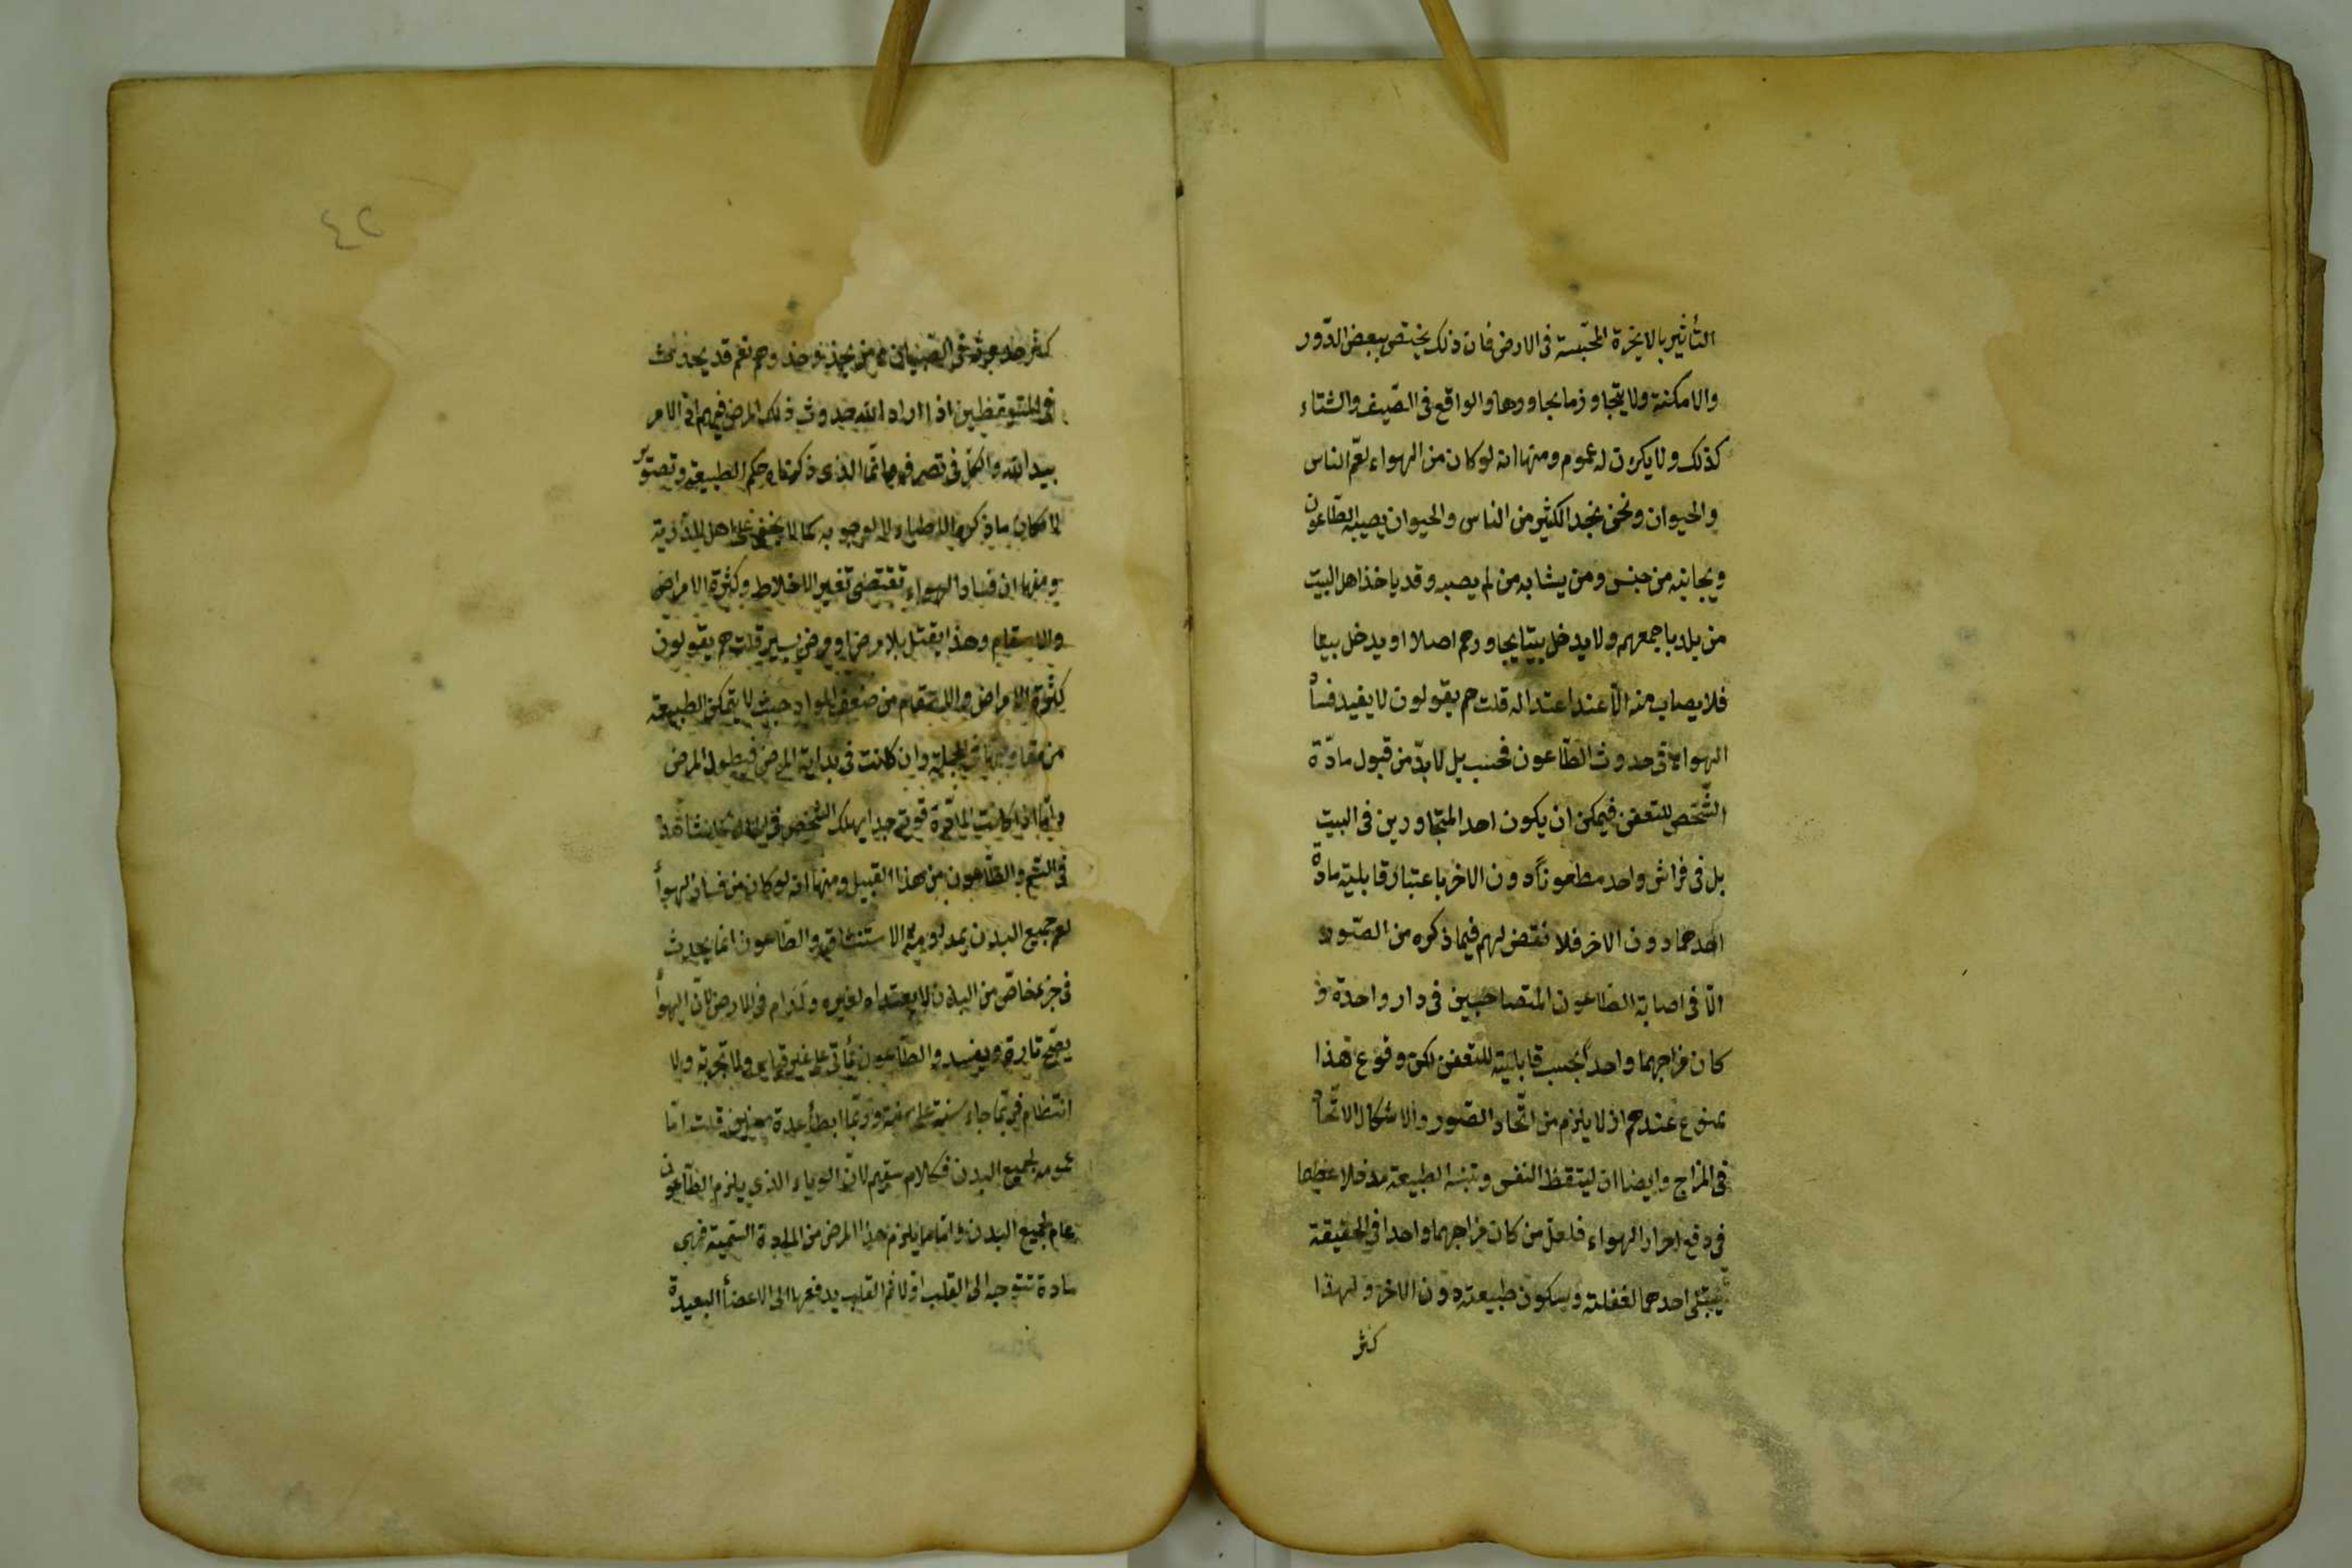 التأثير بالابخرة المحتبسة فى الارض فان ذلك يختص ببعض الدّور
والامكنة ولا يتجاوز ما يجاورها والواقع فى الصّيف والشتاء
كذلك ولا يكون له عموم ومنها انه لو كان من الهواء لعمّ الناس
والحيوان ونحن نجد الكثير من الناس والحيوان يصيبه الطّاعون
وبجانبه من جنس ومن يشابه من لم يصبه وقد ياخذ اهل البيت
من بلد باجمعهم ولا يدخل بيتا يجاورهم اصلا او يدخل بيتا
فلا يصاب منه الّا عند اعتداله قلت هم يقولون لا يفيد فساد
الهواء فى حدوث الطّاعون فحسب بل لا بدّ من قبول مادّة
الشّخص للتعفن فيمكن ان يكون احد المتجاورين فى البيت
بل فى فراش واحد مطعوناً دون الاخر باعتبار قابلية مادة
احدهما دون الاخر فلا نقض لهم فيما ذكره من الصّور
الّا فى اصابة الطاعون المتصاحبين فى دار واحدة و
كان مزاجهما واحداً بحسب قابلية للتعفن لكن وقوع هذا
ممنوع عندهم اذ لا يلزم من اتّحاد الصّور والاشكال الاتّحاد
فى المزاج وايضا ان ليتقظ النفس وتنبه الطبيعة مدخلا عظيما
فى دفع اضرار الهواء فلعل من كان مزاجهما واحدا فى الحقيقة
يبتلى احدهما لغفلته وسكون طبيعته دون الاخر ولهذا
كثر
٤٢
كثر حدوثه فى الصبيان من يحذو حذوهم نعم قد يحدث
فى المتيقظين اذا اراد الله حدوث ذلك المرض فيهم اذ الامر
بيد الله والكل فى تصرفه وانّما الذى ذكرناه حكم الطبيعة وتصوّر
لامكان ما ذكره الاطباء لا لوجوبه كما لا يخفى على اهل الدّرية
ومنها ان فساد الهواء تقتضى تغير الاخلاط وكثرة الامراض
والاسقام وهذا يقتل بلا مرض او مرض يسير قلت هم يقولون
كثرة الامراض والاسقام من ضعف المواد حيث لا يتمكن الطبيعة
من مقاومتها فى الجملة وان كانت فى بداية المرض فيطول المرض
وامّا اذا كانت المادّة قوية جدا يهلك الشخص
فى السّم والطّاعون من هذا القبيل ومنها انه لو كان من فساد الهواء
لعم جميع البدن بمداومة الاستنشاق والطاعون انما يحدث
فى جزء خاصّ من البدن لا يتعداه لغيره ولدام فى الارض لانّ الهواء
يصحّ تارة ويفسد والطّاعون يأتى على غير قياس ولا تجربة ولا
انتظام فربّما جاء سنة على سنة وربّما ابطأ عدة سنين قلت امّا
عمومه لجميع البدن فكلام سقيم لانّ الوباء الذى يلزم الطّاعون
عام لجميع البدن وامّا ما يلزم هذا المرض من المادة السّمية فهى
مادة تتوجه الى القلب اوّلا ثم القلب يدفعها الى الاعضأ البعيدة